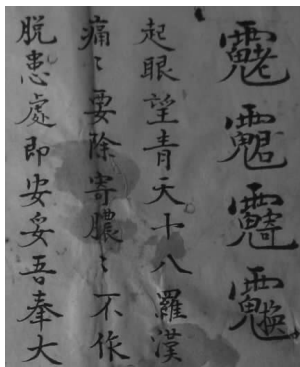 起眼望青天十八羅漢
痛〻要除寄膿〻不作
脱患處即安妥吾奉大